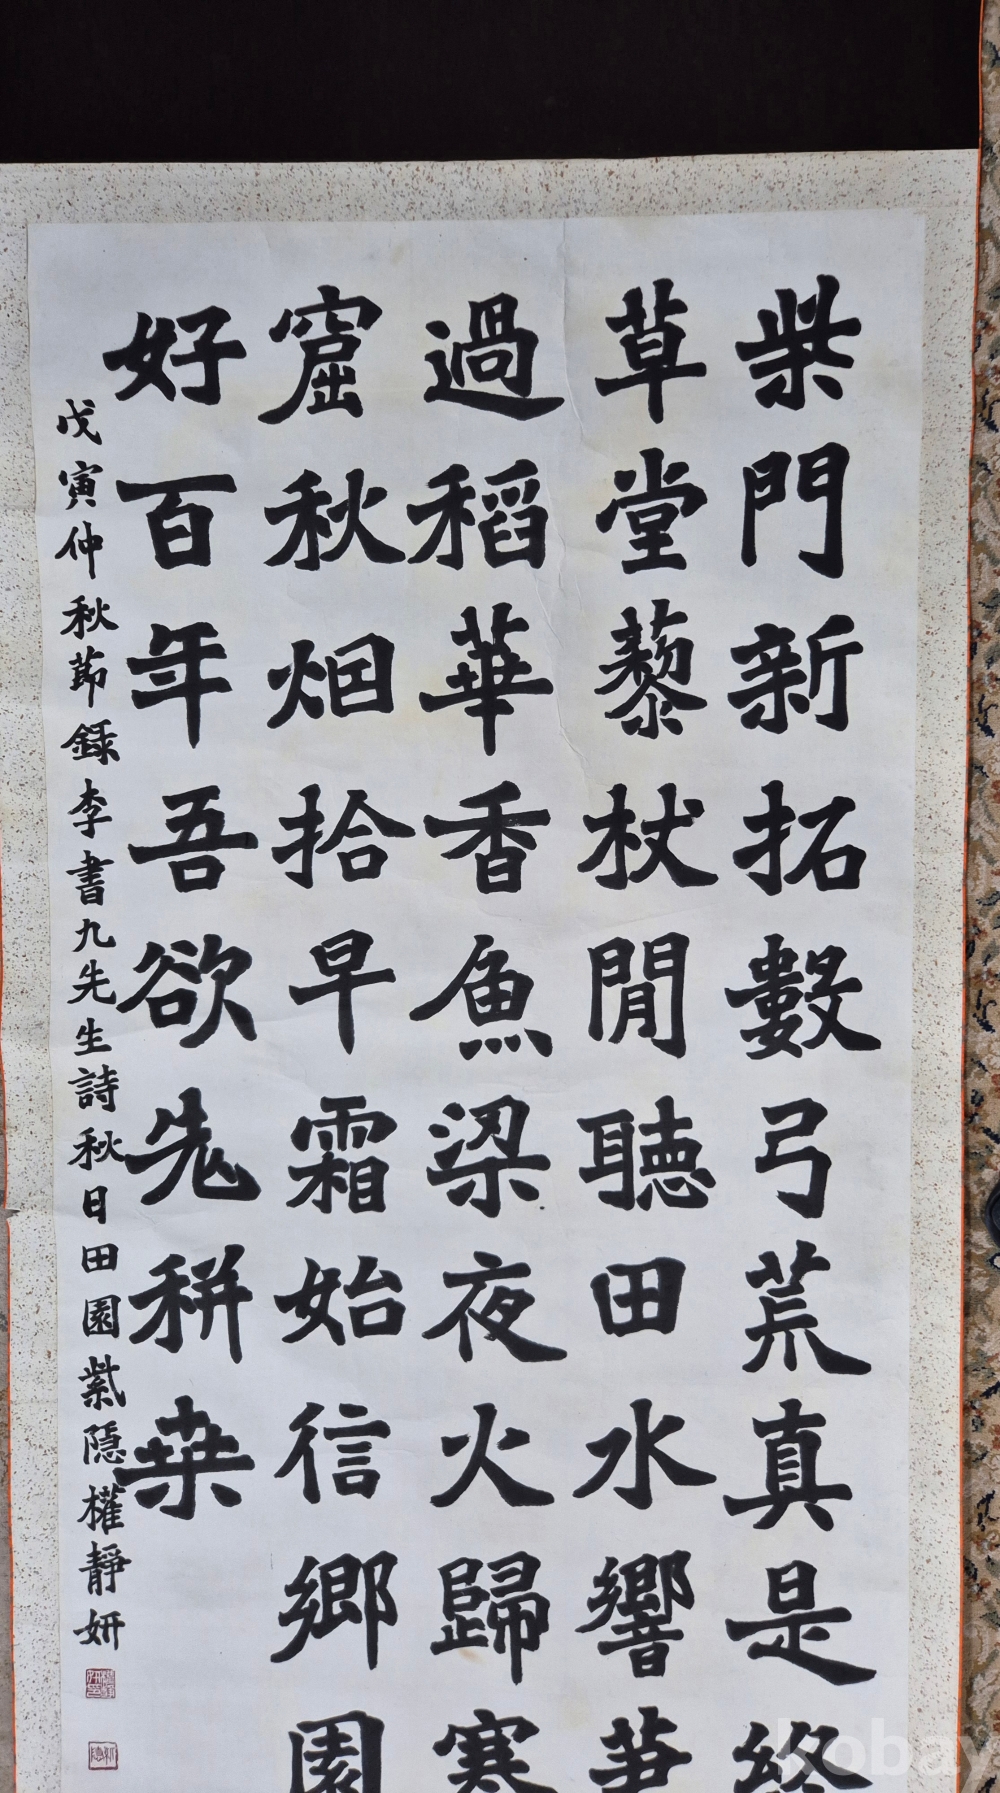 柴門新拓數弓荒真是終
草堂藜杖閒聽田水響茅
過稻華香魚梁夜火歸寒
窟秋烟拾早霜始信鄉園
好百年吾欲先耕桒
戊寅仲秋節錄李書九先生詩秋日田園紫隱權靜妍
kobay